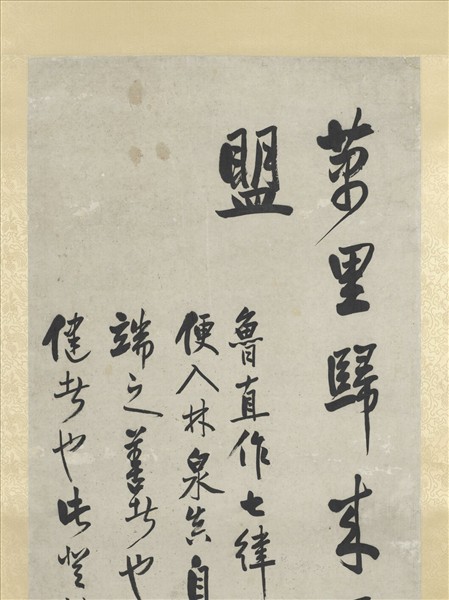 萬里歸來
盟
魯直作七律
便入林泉真自
端之善者也
健者也此從